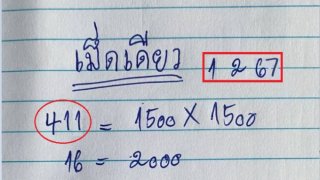 เม็ดเดียว 1 2 67
411 = 1500 X 1500
16 = 2000